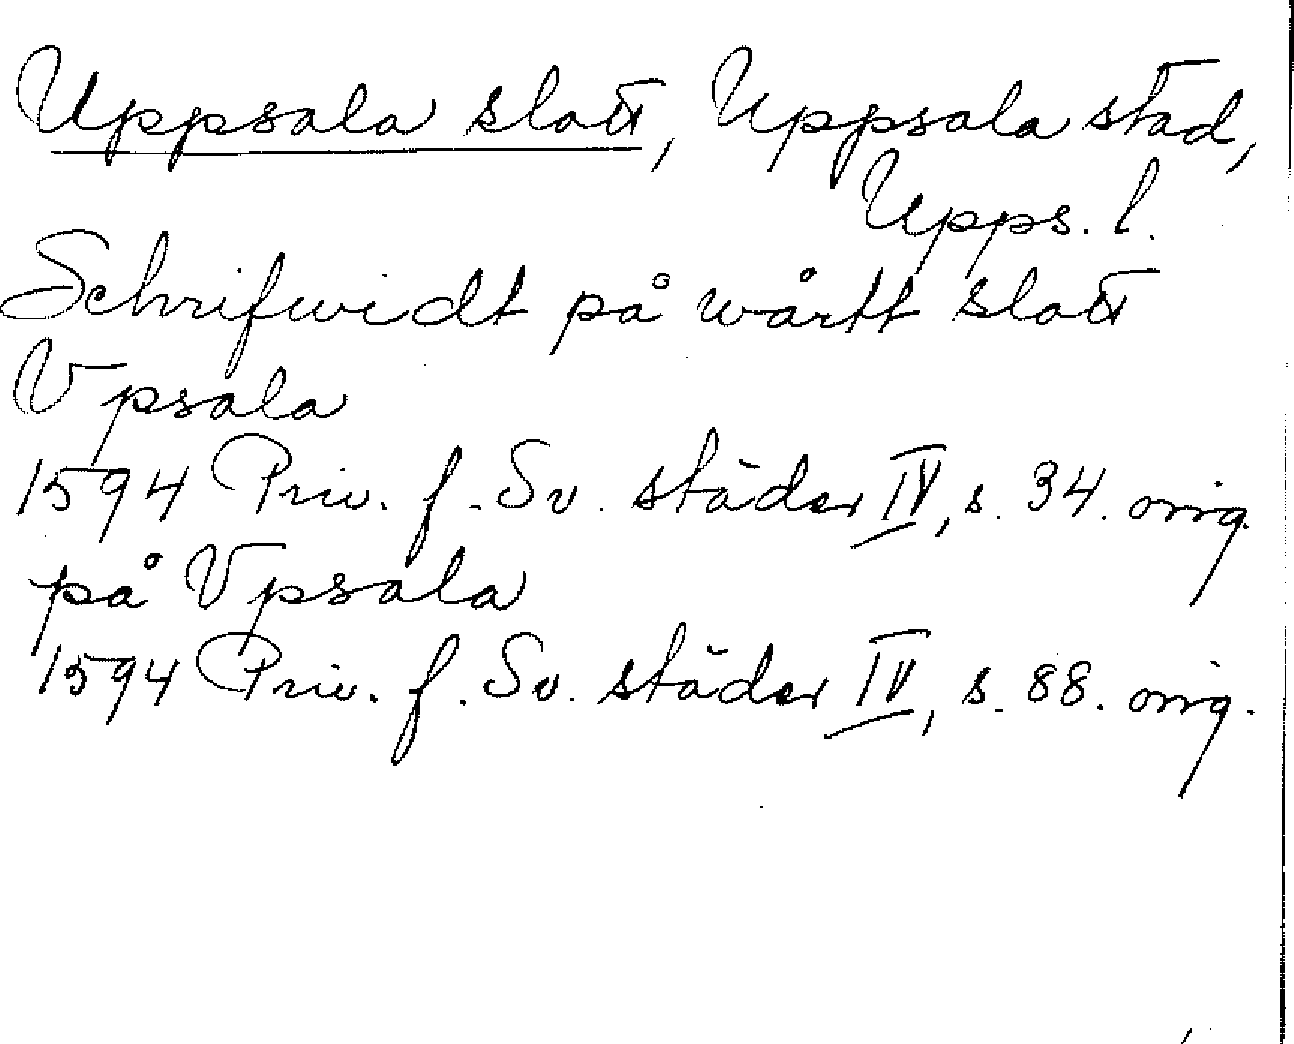 Uppsala slott, Uppsala stad,
Upps. l.
Schrifwidt på wårtt slott
Vpsala
1594 Priv. f. Sv. städer IV, s. 34. orig.
på Vpsala
1594 Priv. f. Sv. städer IV, s. 88. orig.